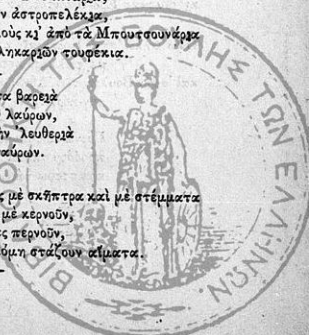 ν ἀστροπελέκι̯α,
οὺς κι̉ ἀπὸ τὰ Μπουτσουνάρι̯α
ληκαρι̯ῶν τουφέκια.
τα βαρει̯ὰ
λαύρων,
ὴν ᾿λευθερι̯ὰ
αύρων.
ς μὲ σκῆπτρα καὶ μὲ στέμματα
μὲ κερνοῦν,
ς περνοῦν,
όμη στάζουν αἵματα.
ΤΗΣ ΒΟΥΛΗΣ ΤΩΝ ΕΛΛΗΝΩΝ